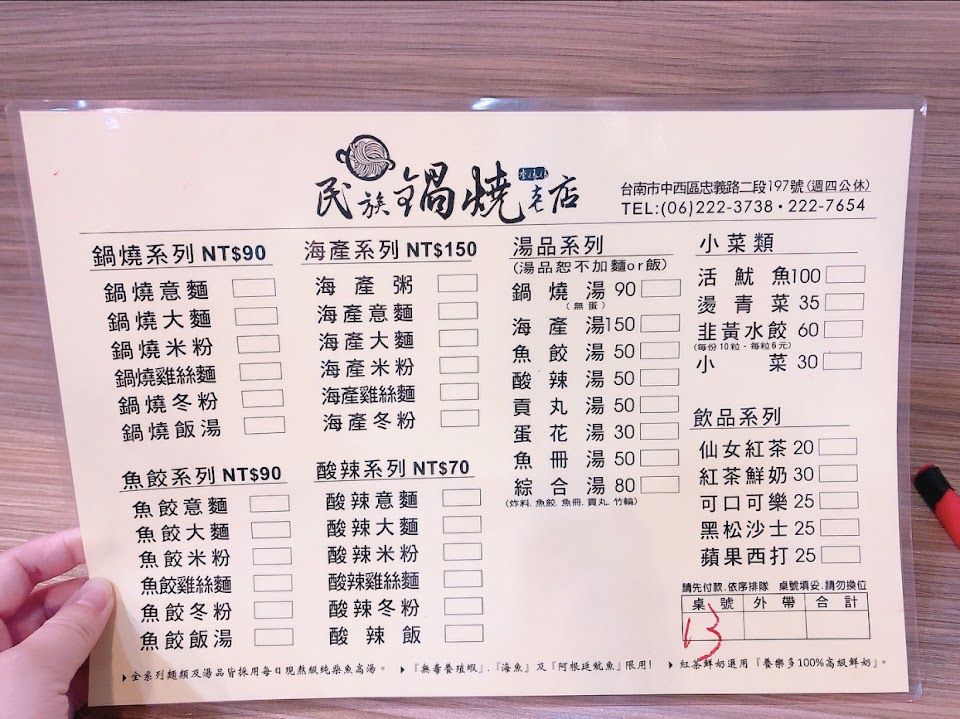 民族鍋燒老店
台南市中西區忠義路二段197號(週四公休)
TEL:(06)222-3738・222-7654
鍋燒系列 NT$90
鍋燒意麵
鍋燒大麵
鍋燒米粉
鍋燒雞絲麵
鍋燒冬粉
鍋燒飯湯
魚餃系列 NT$90
魚餃意麵
魚餃大麵
魚餃米粉
魚餃雞絲麵
魚餃冬粉
魚餃飯湯
海產系列 NT$150
海產粥
海產意麵
海產大麵
海產米粉
海產雞絲麵
海產冬粉
酸辣系列 NT$70
酸辣意麵
酸辣大麵
酸辣米粉
酸辣雞絲麵
酸辣冬粉
酸辣飯
湯品系列
(湯品恕不加麵or飯)
鍋燒湯 90
(無蛋)
海產湯150
魚餃湯 50
酸辣湯 50
貢丸湯 50
蛋花湯 30
魚冊湯 50
綜合湯 80
(炸料.魚餃.魚冊.貢丸.竹輪)
小菜類
活魷魚100
燙青菜 35
韭黃水餃 60
(每份10粒・每粒6元)
小菜 30
飲品系列
仙女紅茶 20
紅茶鮮奶 30
可口可樂 25
黑松沙士 25
蘋果西打 25
請先付款.依序排隊 桌號填妥.請勿換位
桌號 外帶 合計
13
全系列麵類及湯品皆採用每日現熬級純柴魚高湯。
『無毒養殖蝦』.『海魚』及『阿根廷魷魚』限用!
紅茶鮮奶選用『養樂多100%高級鮮奶』。